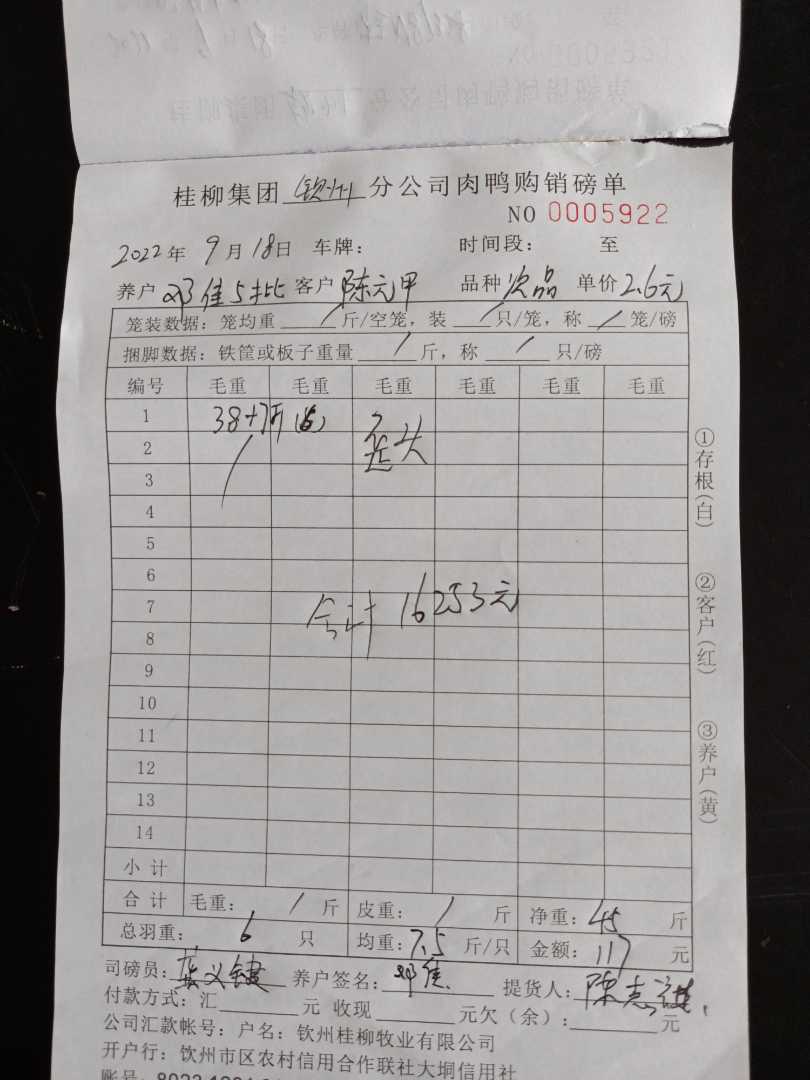 桂柳集团 钦州 分公司肉鸭购销磅单
NO 0005922
2022年 9月18日 车牌： 时间段： 至
养户 邓佳5批 客户 陈元甲 品种 次品 单价 2.6元
笼装数据：笼均重 / 斤/空笼，装 / 只/笼，称 / 笼/磅
捆脚数据：铁筐或板子重量 / 斤，称 / 只/磅
编号 毛重 毛重 毛重 毛重 毛重 毛重
1 38+7斤 (6)
2
3
4
5
6
7 合计 16253元
8
9
10
11
12
13
14
小计
合计 毛重： / 斤 皮重： / 斤 净重：45 斤
总羽重： 6 只 均重：7.5 斤/只 金额：117 元
司磅员： 义键 养户签名：邓佳 提货人：陈志
付款方式：汇 元 收现 元欠（余）： 元
公司汇款帐号：户名：钦州桂柳牧业有限公司
开户行：钦州市区农村信用合作联社大垌信用社
账号：
①存根(白)
②客户(红)
③养户(黄)